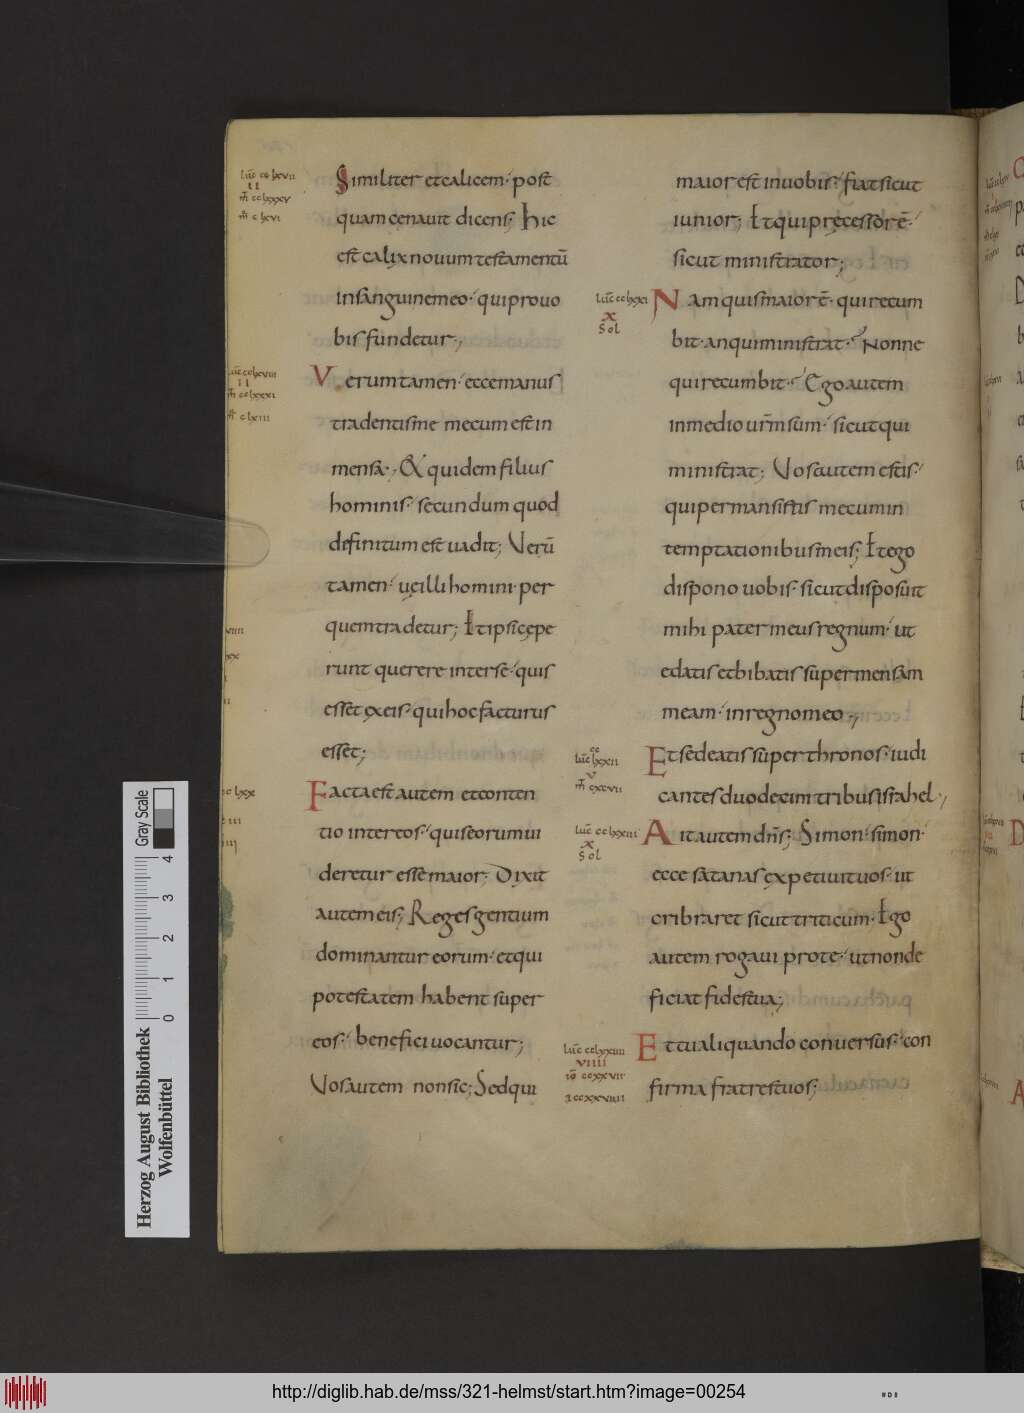 Similiter et calicem· post
quam cenauit dicens; hic
est calix nouum testamentū
in sanguine meo· qui pro uo
bis fundetur·,
Verumtamen· ecce manus
tradentis me mecum est in
mensa·, & quidem filius
hominis· secundum quod
definitum est uadit; Verū
tamen· uę illi homini· per
quem tradetur; Et ipsi cępe
runt querere inter se· quis
esset ex eis· qui hoc facturus
esset;
Facta est autem et conten
tio inter eos· quis eorum ui
deretur esse maior; Dixit
autem eis; Reges gentium
dominantur eorum· et qui
potestatem habent super
eos· benefici uocantur;
Vos autem non sic; Sed qui
maior est in uobis· fiat sicut
iunior; Et qui pręcessor ē·
sicut ministrator;
Nam quis maior ē· qui recum
bit· an qui ministrat· Nonne
qui recumbit· Ego autem
in medio ur̄m sum· sicut qui
ministrat; Vos autem estis·
qui permansistis mecum in
temptationibus meis; Et ego
dispono uobis· sicut disposuit
mihi pater meus regnum· ut
edatis et bibatis super mensam
meam· in regno meo·,
Et sedeatis super thronos· iudi
cantes duodecim tribus israhel·,
Ait autem dn̄s; Simon· simon·
ecce satanas expetiuit uos· ut
cribraret sicut triticum· Ego
autem rogaui pro te· ut non de
ficiat fides tua;
Et tu aliquando conuersus· con
firma fratres tuos;
Gray Scale
0 1 2 3 4
Herzog August Bibliothek
Wolfenbüttel
http://diglib.hab.de/mss/321-helmst/start.htm?image=00254